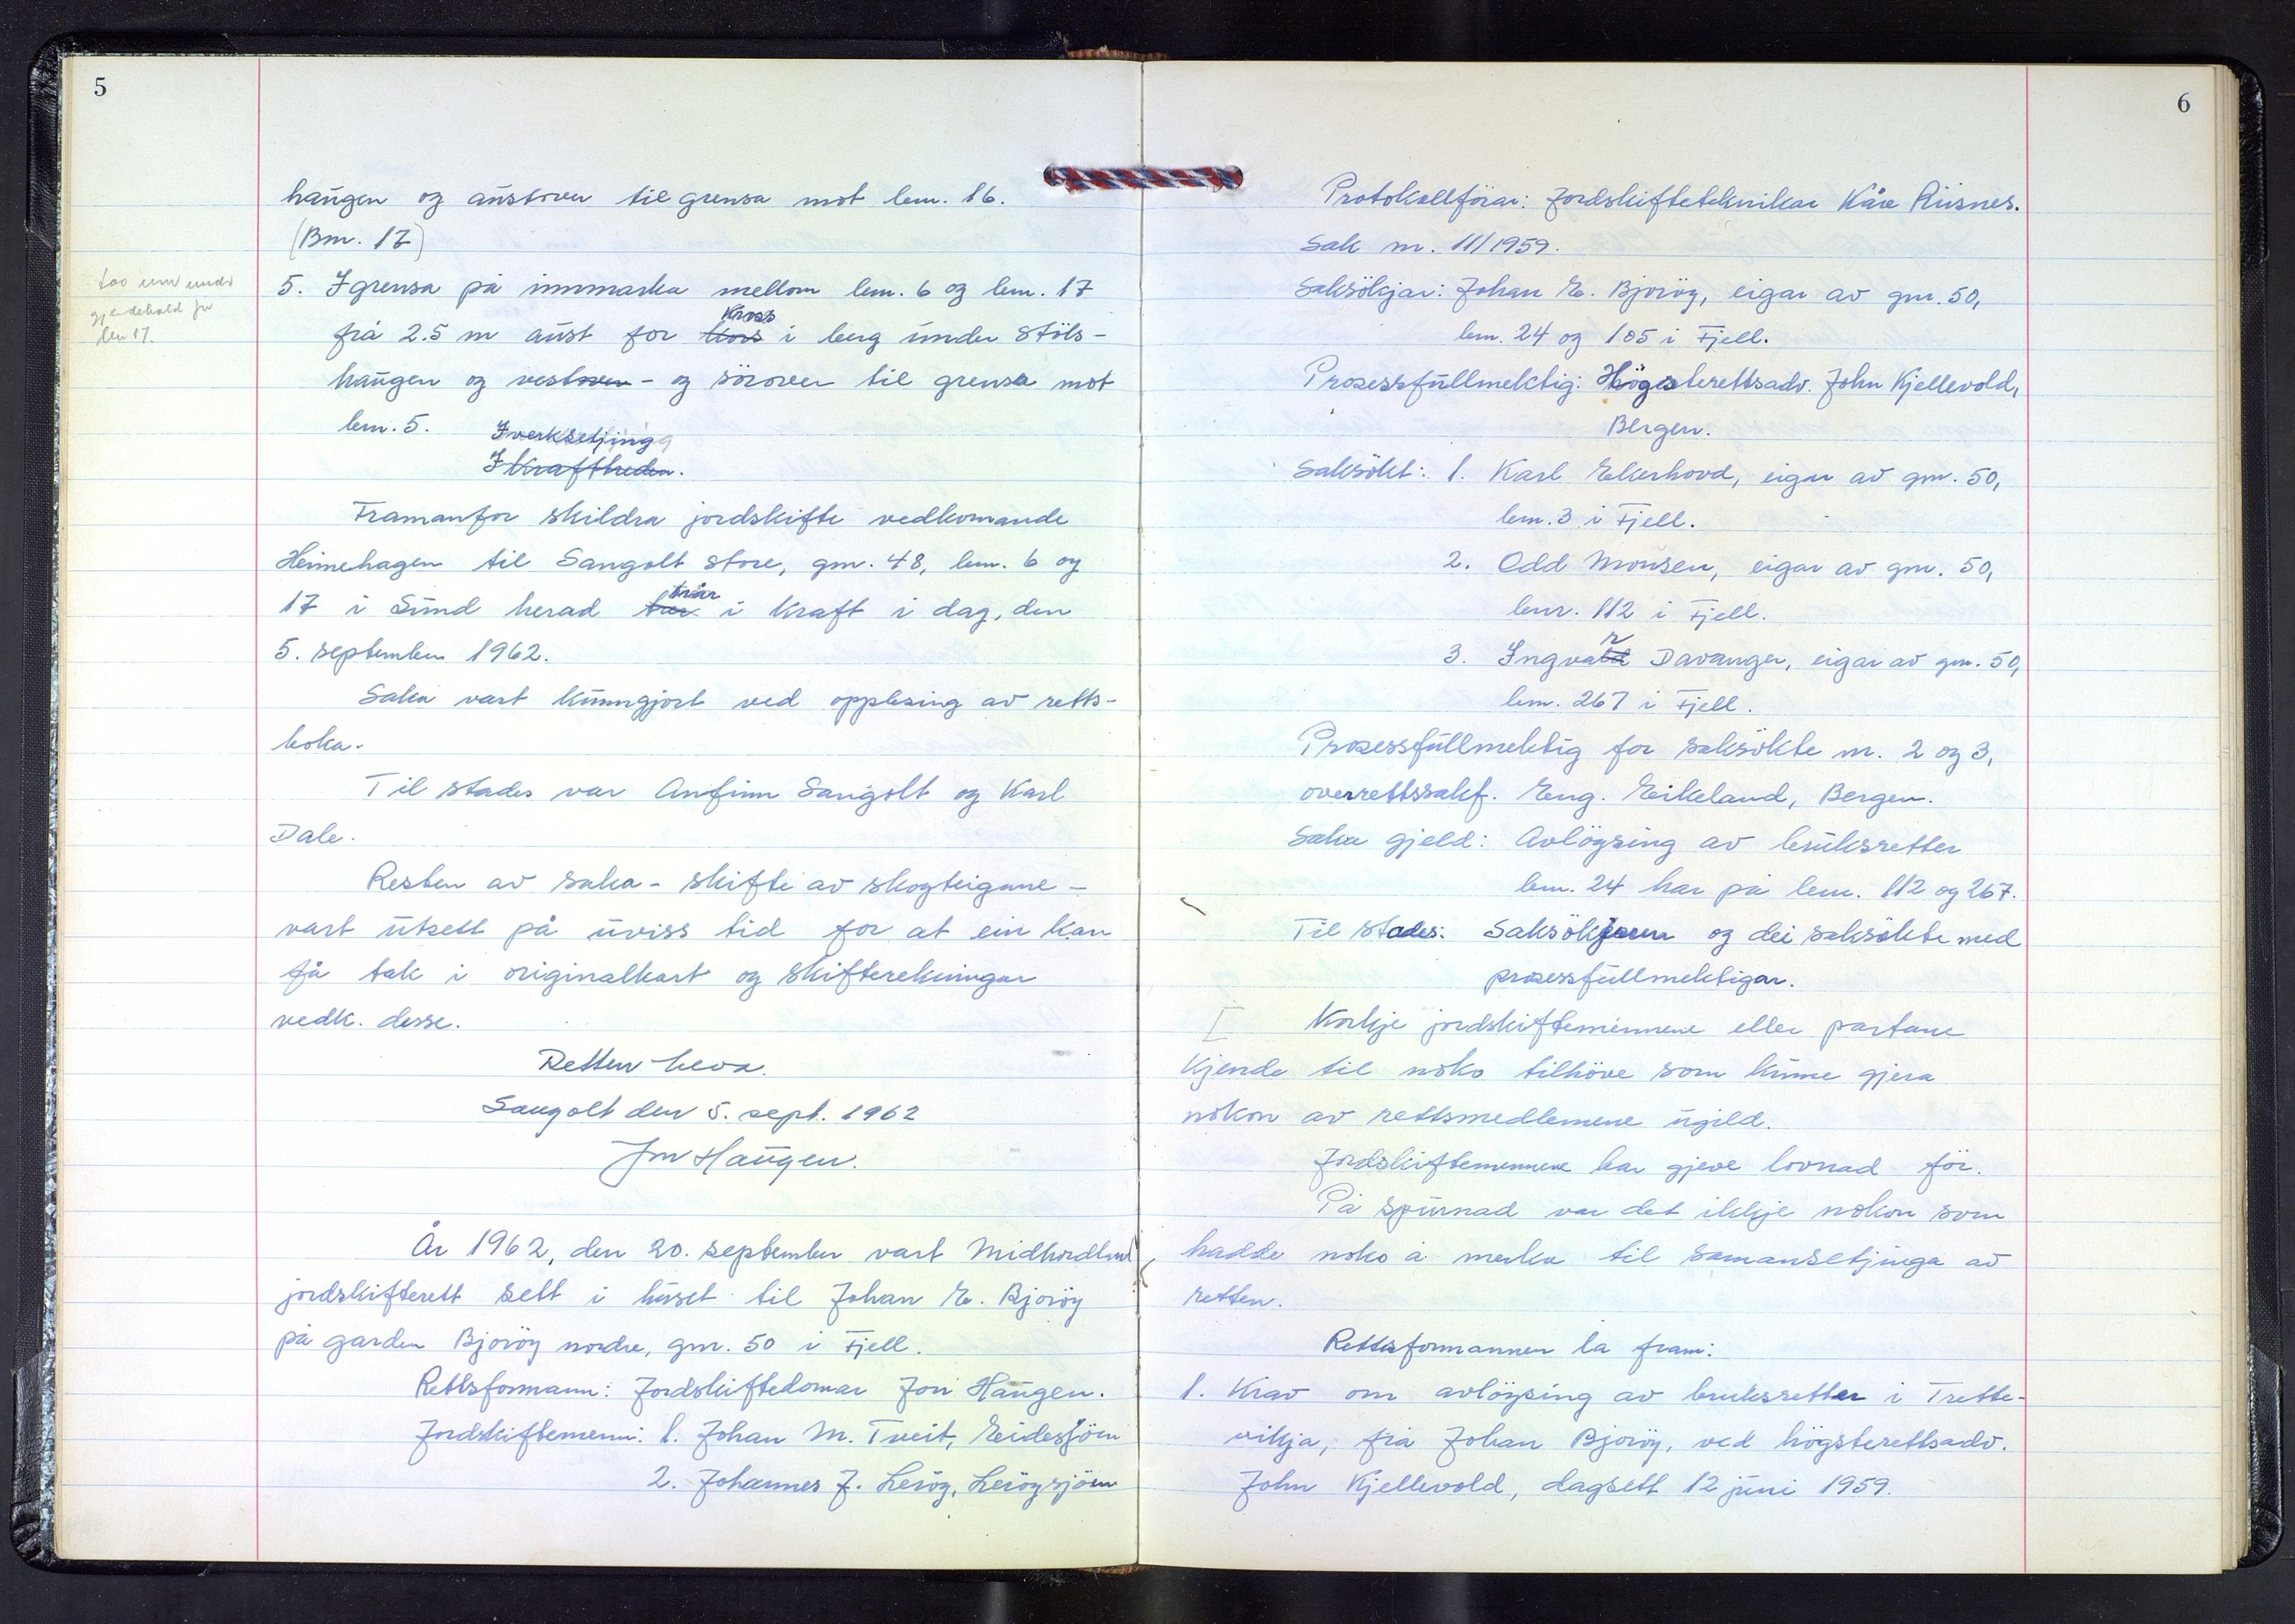 5
haugen og austover til grensa mot bnr. 16.
(Bnr. 17)
5. I grensa på innmarka mellom bnr. 6 og bnr. 17
kross
frå 2.5 m aust for kors i berg under Stöls-
haugen og vestover - og sörover til grensa mot
bnr. 5.
Iverksetjing
Ikrafttreden.
Framanfor skildra jordskifte vedkomande
Heimehagen til Sangolt store, gnr. 48, bnr. 6 og
trår
17 i Sund herad trer i kraft i dag, den
5. september 1962.
Saka vart kunngjort ved opplesing av retts-
boka.
Til stades var Anfinn Sangolt og Karl
Dale.
Resten av saka - skifte av skogteigane -
vart utsett på uviss tid for at ein kan
få tak i originalkart og skifterekningar
vedk. desse.
Retten heva.
Sangolt den 5. sept. 1962
Jon Haugen.
År 1962, den 20. september vart Midhordland
jordskifterett sett i huset til Johan E. Bjoröy
på garden Bjoröy nordre, gnr. 50 i Fjell.
Rettsformann: Jordskiftedomar Jon Haugen.
Jordskiftemenn: 1. Johan M. Tveit, Eidesjöen
2. Johannes J. Leröy, Leröysjöen
6
Protokollförar: Jordskifteteknikar Kåre Riisnes.
Sak nr. 11/1959.
Saksökjar: Johan E. Bjoröy, eigar av gnr. 50,
bnr. 24 og 105 i Fjell.
Prosessfullmektig: Högsterettsadv. John Kjellevold,
Bergen.
Saksökt: 1. Karl Ekerhovd, eigar av gnr. 50,
bnr. 3 i Fjell.
2. Odd Monsen, eigar av gnr. 50,
bnr. 112 i Fjell.
r
3. Ingvald Davanger, eigar av gnr. 50,
bnr. 267 i Fjell.
Prosessfullmektig for saksökte nr. 2 og 3,
overrettssakf. Eng. Eikeland, Bergen.
Saka gjeld: Avlöysing av bruksretter
bnr. 24 har på bnr. 112 og 267.
Til stades: Saksökjaren og dei saksökte med
prosessfullmektigar.
Korkje jordskiftemennene eller partane
kjende til noko tilhöve som kunne gjera
nokon av rettsmedlemene ugild.
Jordskiftemennene har gjeve lovnad för.
På spurnad var det ikkje nokon som
hadde noko å merka til samansetjinga av
retten.
Rettsformannen la fram:
1. Krav om avlöysing av bruksretter i Trette-
vikja, frå Johan Bjoröy, ved högsterettsadv.
John Kjellevold, dagsett 12 juni 1959.